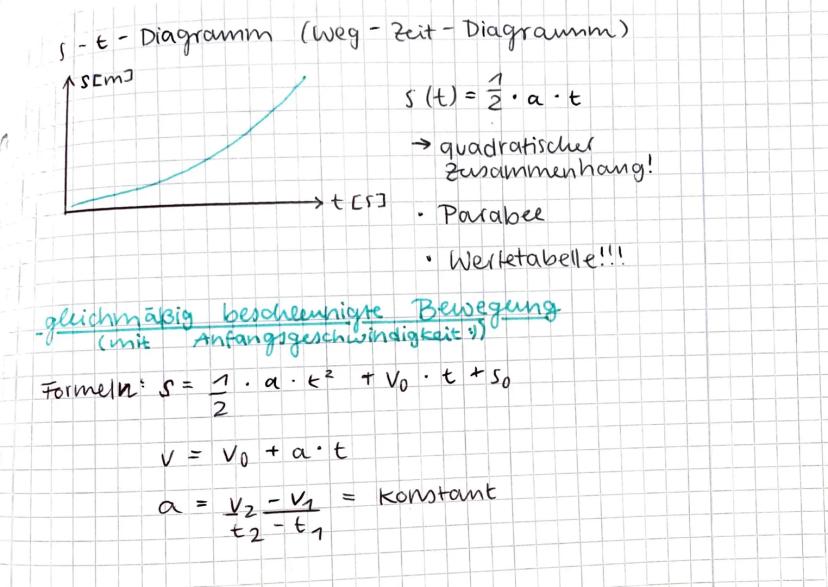 s-t-Diagramm (Weg-Zeit-Diagramm)
s[m]
s(t) = 1/2 · a · t
→ quadratischer
Zusammenhang!
t[s]
· Parabel
· Wertetabelle!!!
-gleichmäßig beschleunigte Bewegung
(mit Anfangsgeschwindigkeit :))
Formeln: s = 1/2 · a · t² + v₀ · t + s₀
v = v₀ + a · t
a = (v₂ - v₁)/(t₂ - t₁) = konstant